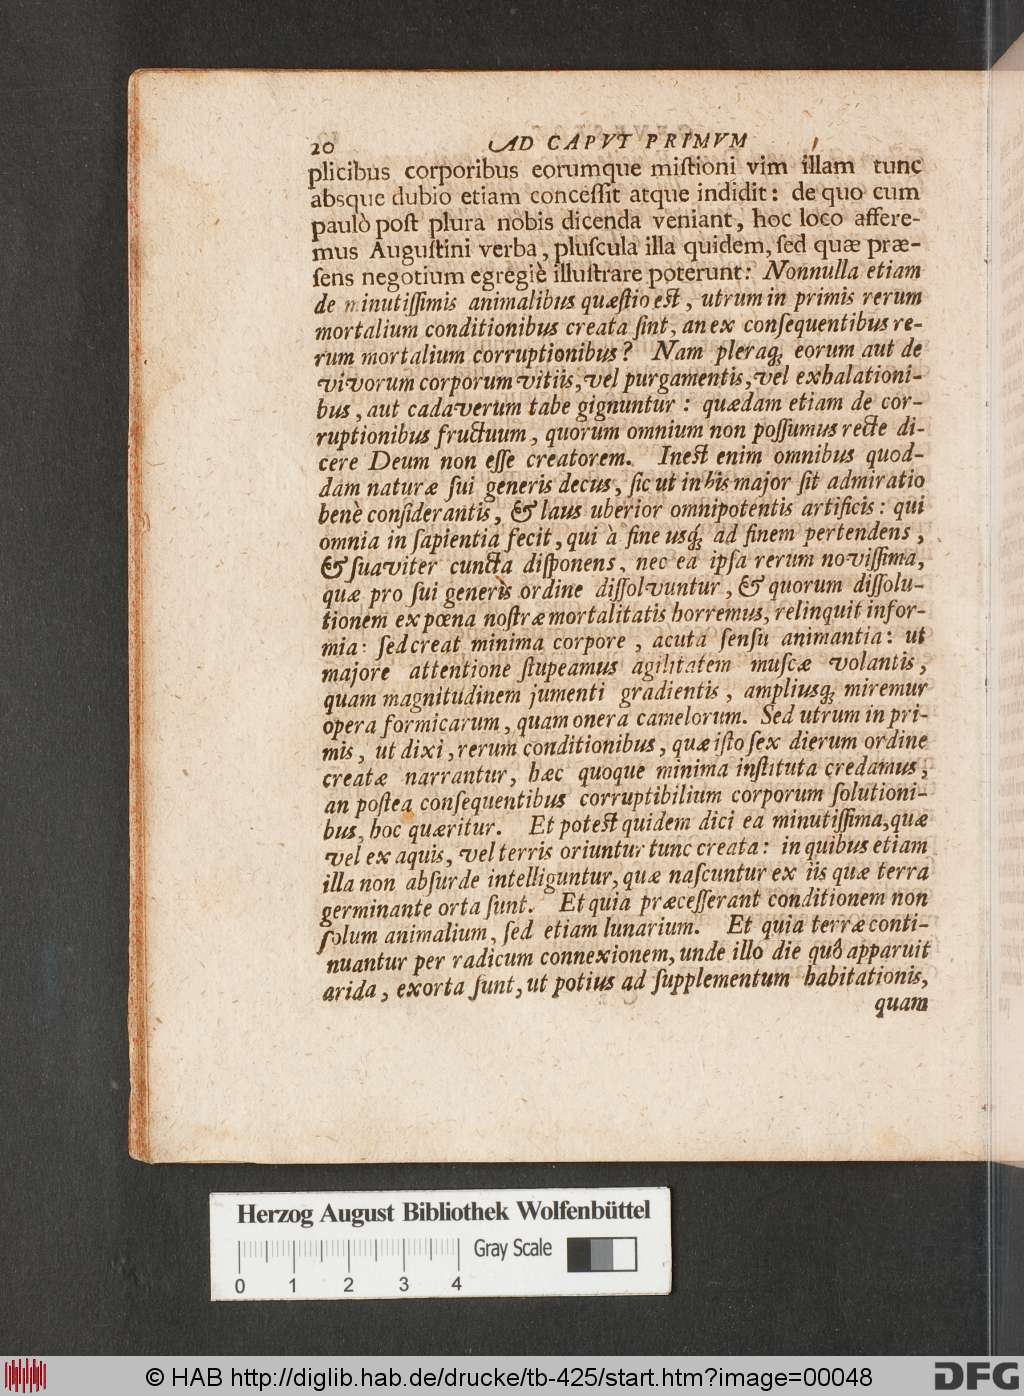 20 AD CAPVT PRIMVM
plicibus corporibus eorumque miſtioni vim illam tunc
absque dubio etiam conceſſit atque indidit: de quo cum
paulò poſt plura nobis dicenda veniant, hoc loco affere-
mus Auguſtini verba, pluſcula illa quidem, ſed quæ præ-
ſens negotium egregiè illuſtrare poterunt: Nonnulla etiam
de minutiſſimis animalibus quæſtio eſt, utrum in primis rerum
mortalium conditionibus creata ſint, an ex conſequentibus re-
rum mortalium corruptionibus? Nam pleraq; eorum aut de
vivorum corporum vitiis, vel purgamentis, vel exhalationi-
bus, aut cadaverum tabe gignuntur: quædam etiam de cor-
ruptionibus fructuum, quorum omnium non poſſumus recte di-
cere Deum non eſſe creatorem. Ineſt enim omnibus quod-
dam naturæ ſui generis decus, ſic ut in his major ſit admiratio
benè conſiderantis, & laus uberior omnipotentis artificis: qui
omnia in ſapientia fecit, qui à fine usq; ad finem pertendens,
& ſuaviter cuncta diſponens, nec ea ipſa rerum noviſſima,
quæ pro ſui generìs ordine diſſolvuntur, & quorum diſſolu-
tionem ex pœna noſtræ mortalitatis horremus, relinquit infor-
mia: ſed creat minima corpore, acuta ſenſu animantia: ut
majore attentione ſtupeamus agilitatem muſcæ volantis,
quam magnitudinem jumenti gradientis, ampliusq; miremur
opera formicarum, quam onera camelorum. Sed utrum in pri-
mis, ut dixi, rerum conditionibus, quæ iſto ſex dierum ordine
creatæ narrantur, hæc quoque minima inſtituta credamus,
an poſtea conſequentibus corruptibilium corporum ſolutioni-
bus, hoc quæritur. Et poteſt quidem dici ea minutiſſima, quæ
vel ex aquis, vel terris oriuntur tunc creata: in quibus etiam
illa non abſurde intelliguntur, quæ naſcuntur ex iis quæ terra
germinante orta ſunt. Et quia præceſſerant conditionem non
ſolum animalium, ſed etiam lunarium. Et quia terræ conti-
nuantur per radicum connexionem, unde illo die quô apparuit
arida, exorta ſunt, ut potius ad ſupplementum habitationis,
quam
Herzog August Bibliothek Wolfenbüttel
Gray Scale
0 1 2 3 4
© HAB http://diglib.hab.de/drucke/tb-425/start.htm?image=00048
DFG